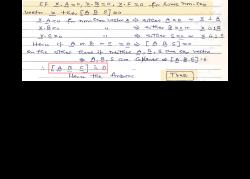 If X.A=0, X.B=0, X.C=0 for some non-zero
vector X then [A B C]=0
X.A=0 for non-zero vector X ⇒ either A=0 or X ⊥ A
X.B=0 ⇒ either B=0 or X ⊥ B
X.C=0 ⇒ either C=0 or X ⊥ C
Here if A or B or C = 0 ⇒ [A B C]=0
on the other hand if neither A, B, C are zero vector
⇒ A, B, C are coplanar ⇒ [A B C]=0
∴ [A B C]=0
Hence the Answer True